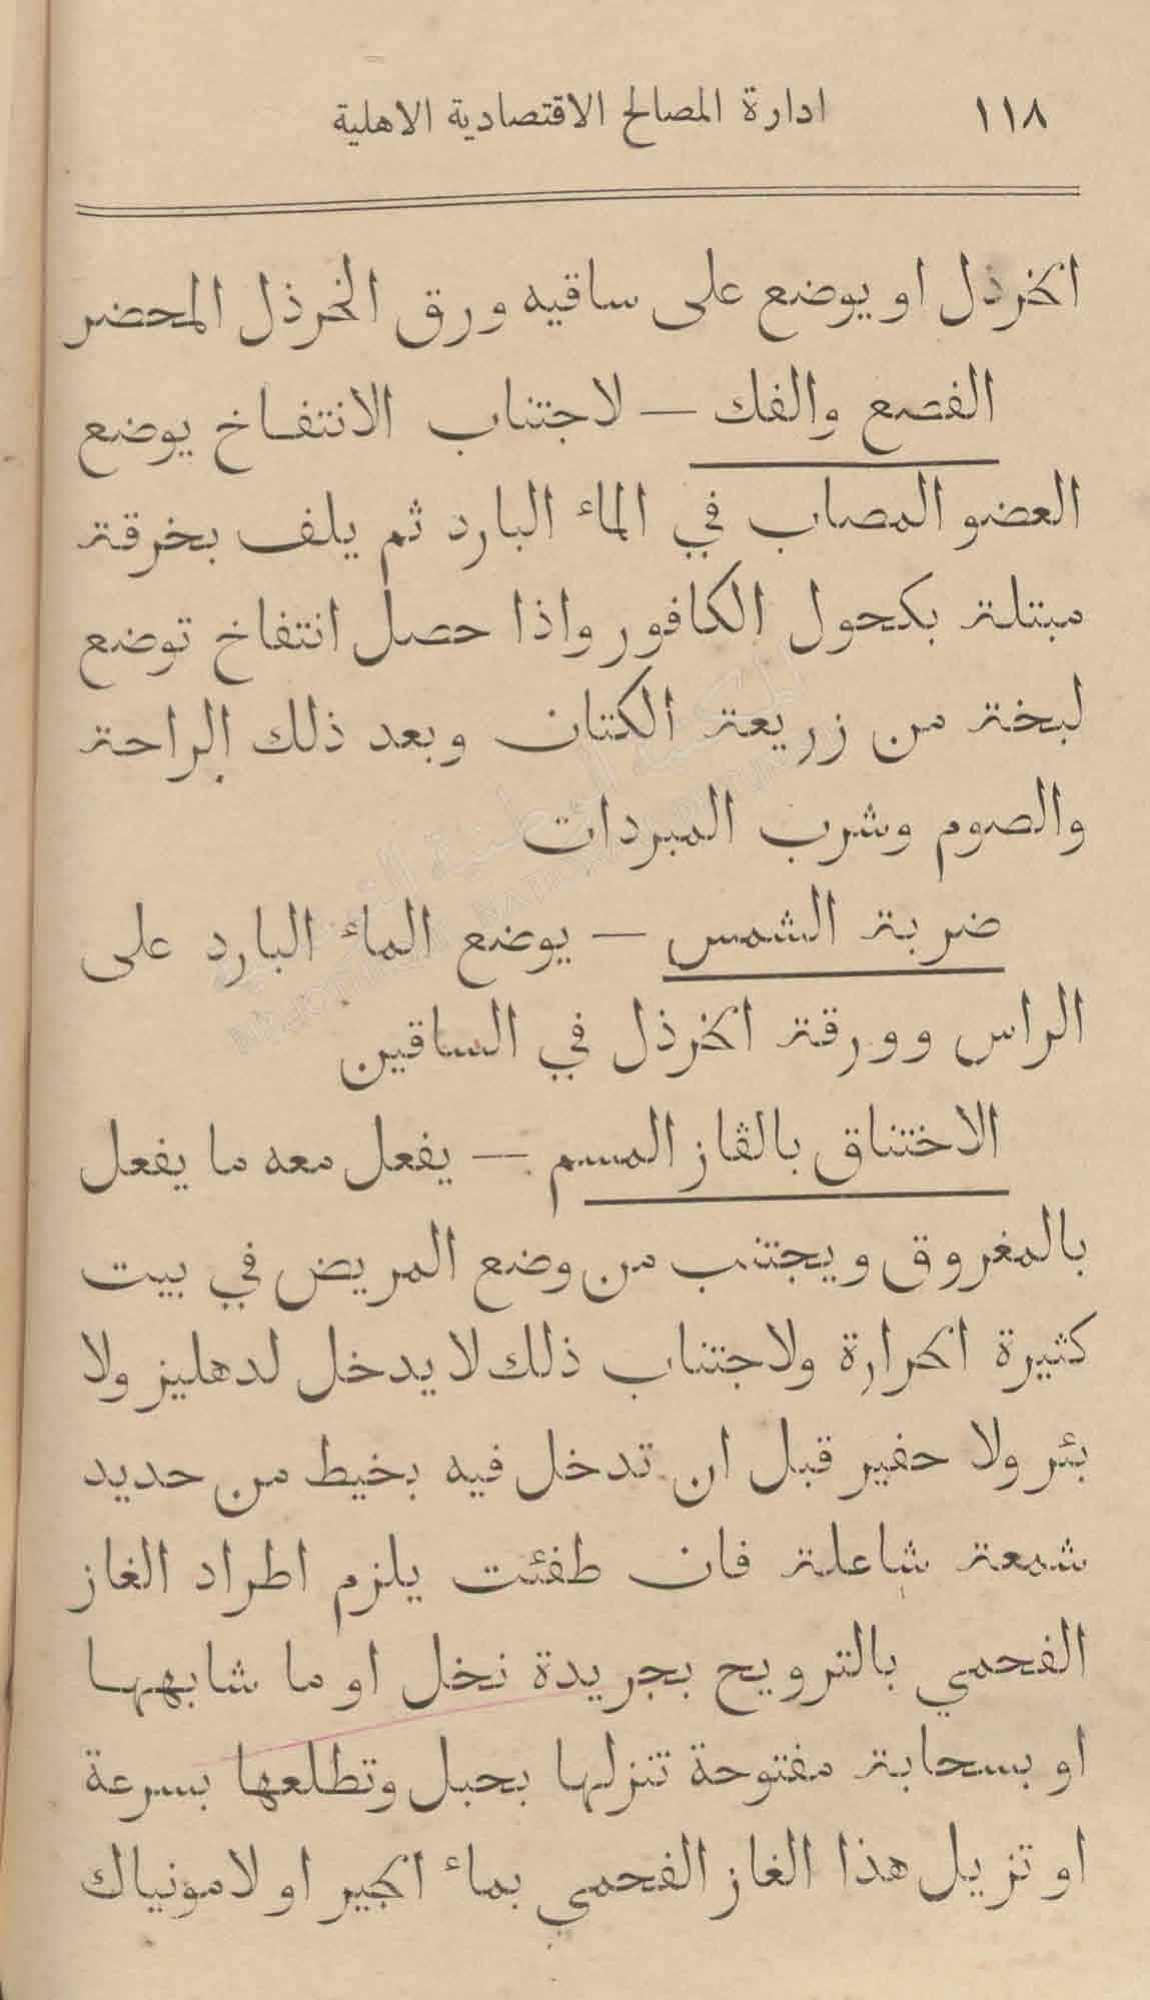 ١١٨ ادارة المصالح الاقتصادية الاهلية
الخرذل او يوضع على ساقيه ورق الخرذل المحضر
الفصع والفك — لاجتناب الانتفاخ يوضع
العضو المصاب في الماء البارد ثم يلف بخرقة
مبتلة بكحول الكافور واذا حصل انتفاخ توضع
لبخة من زريعة الكتان وبعد ذلك الراحة
والصوم وشرب المبردات
ضربة الشمس — يوضع الماء البارد على
الراس وورقة الخرذل في الساقين
الاختناق بالڤاز المسم — يفعل معه ما يفعل
بالمغروق ويجتنب من وضع المريض في بيت
كثيرة الحرارة ولاجتناب ذلك لا يدخل لدهليز ولا
بئر ولا حفير قبل ان تدخل فيه بخيط من حديد
شمعة شاعلة فان طفئت يلزم اطراد الغاز
الفحمي بالترويح بجريدة نخل او ما شابهها
او بسحابة مفتوحة تنزلها بحبل وتطلعها بسرعة
او تزيل هذا الغاز الفحمي بماء الجير او لامونياك